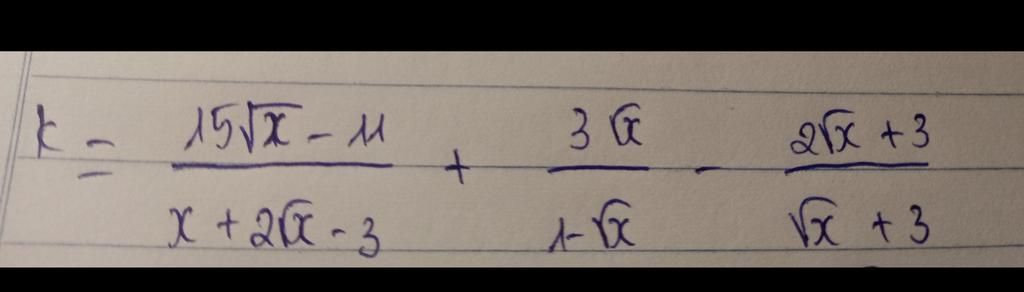 K = (15√x - 11)/(x + 2√x - 3) + (3√x)/(1 - √x) - (2√x + 3)/(√x + 3)